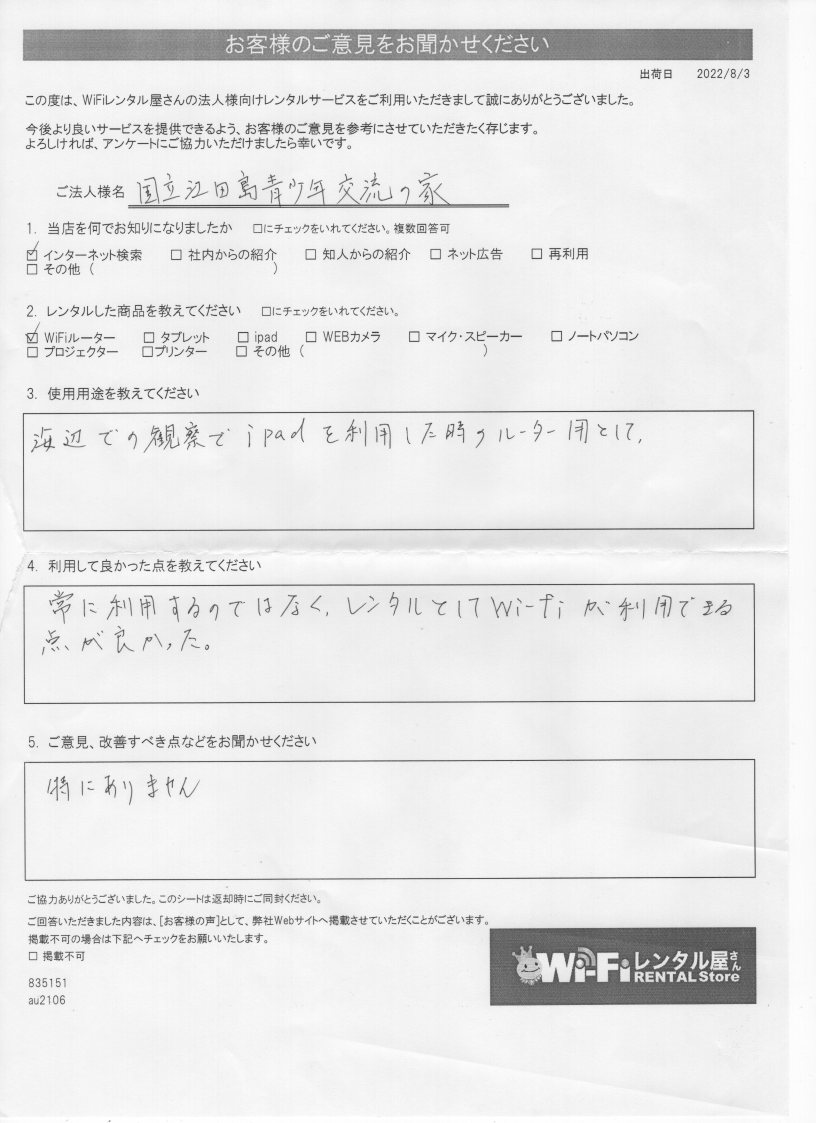 お客様のご意見をお聞かせください
出荷日 2022/8/3
この度は、WiFiレンタル屋さんの法人様向けレンタルサービスをご利用いただきまして誠にありがとうございました。
今後より良いサービスを提供できるよう、お客様のご意見を参考にさせていただきたく存じます。
よろしければ、アンケートにご協力いただけましたら幸いです。
ご法人様名 国立江田島青少年交流の家
1. 当店を何でお知りになりましたか □にチェックをいれてください。複数回答可
☑ インターネット検索 □ 社内からの紹介 □ 知人からの紹介 □ ネット広告 □ 再利用
□ その他 ( )
2. レンタルした商品を教えてください □にチェックをいれてください。
☑ WiFiルーター □ タブレット □ ipad □ WEBカメラ □ マイク・スピーカー □ ノートパソコン
□ プロジェクター □プリンター □ その他 ( )
3. 使用用途を教えてください
海辺での観察でipadを利用した時のルーター用として。
4. 利用して良かった点を教えてください
常に利用するのではなく、レンタルとしてWi-fiが利用できる
点が良かった。
5. ご意見、改善すべき点などをお聞かせください
特にありません
ご協力ありがとうございました。このシートは返却時にご同封ください。
ご回答いただきました内容は、[お客様の声]として、弊社Webサイトへ掲載させていただくことがございます。
掲載不可の場合は下記へチェックをお願いいたします。
□ 掲載不可
835151
au2106
Wi-Fiレンタル屋さん
RENTAL Store